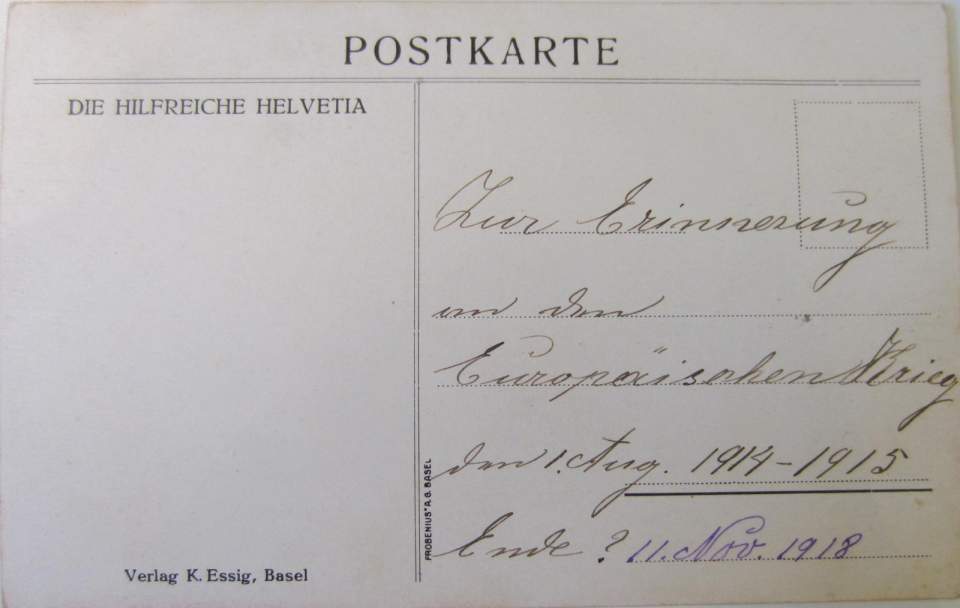 POSTKARTE
DIE HILFREICHE HELVETIA
Zur Erinnerung
an den
Europäischen Krieg
den 1. Aug. 1914-1915
Ende? 11. Nov. 1918
"FROBENIUS" A.G. BASEL
Verlag K. Essig, Basel